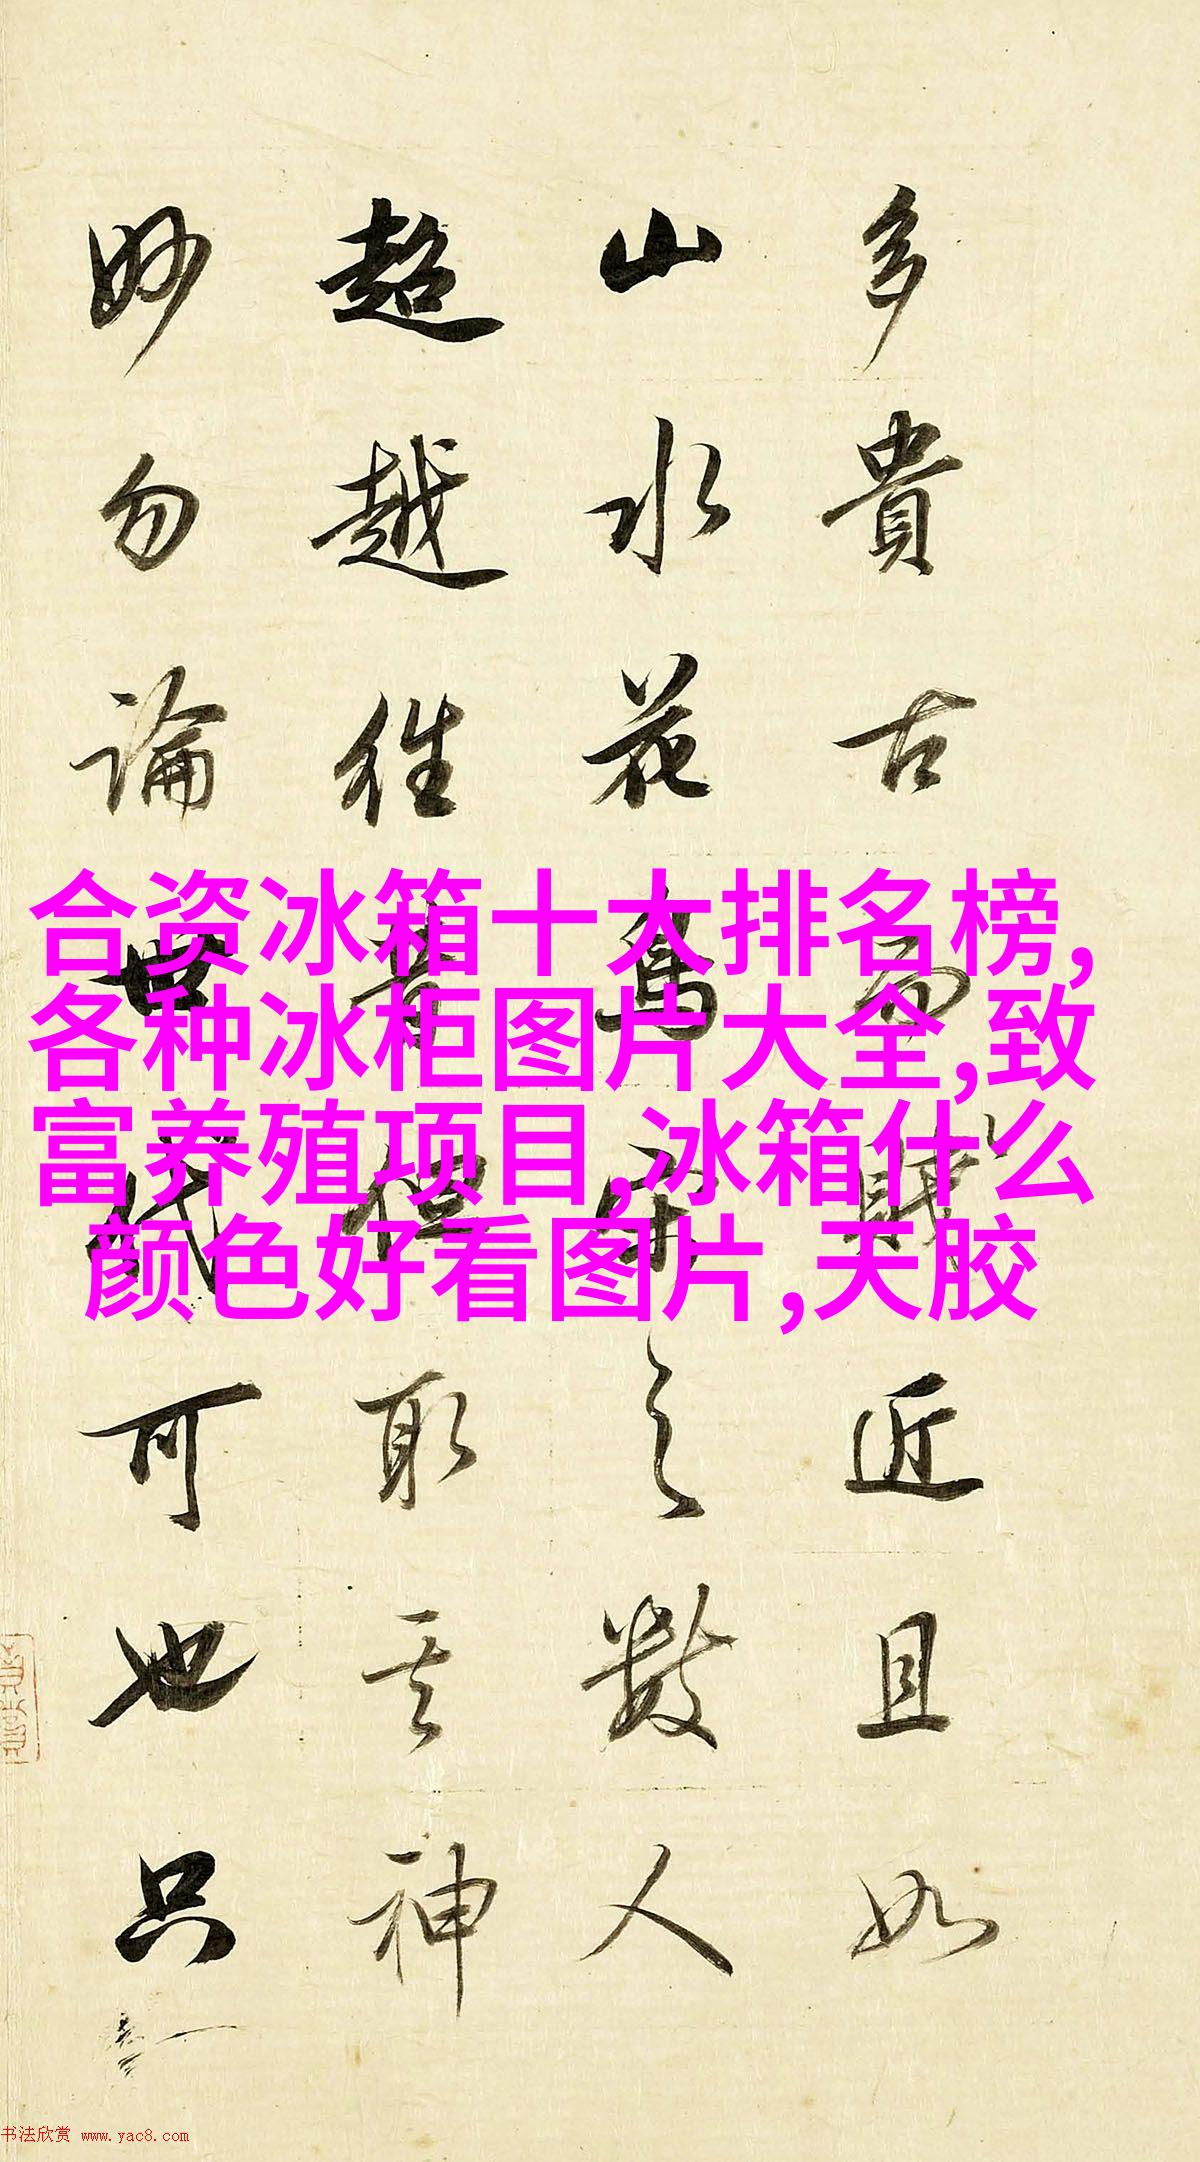 多貴古而賤近且如
山水花鳥宋之數人
超越往昔但取其神
妙勿論世代可也只
合资冰箱十大排名榜,
各种冰柜图片大全,致
富养殖项目,冰箱什么
颜色好看图片,天胶
书法欣赏 www.yac8.com